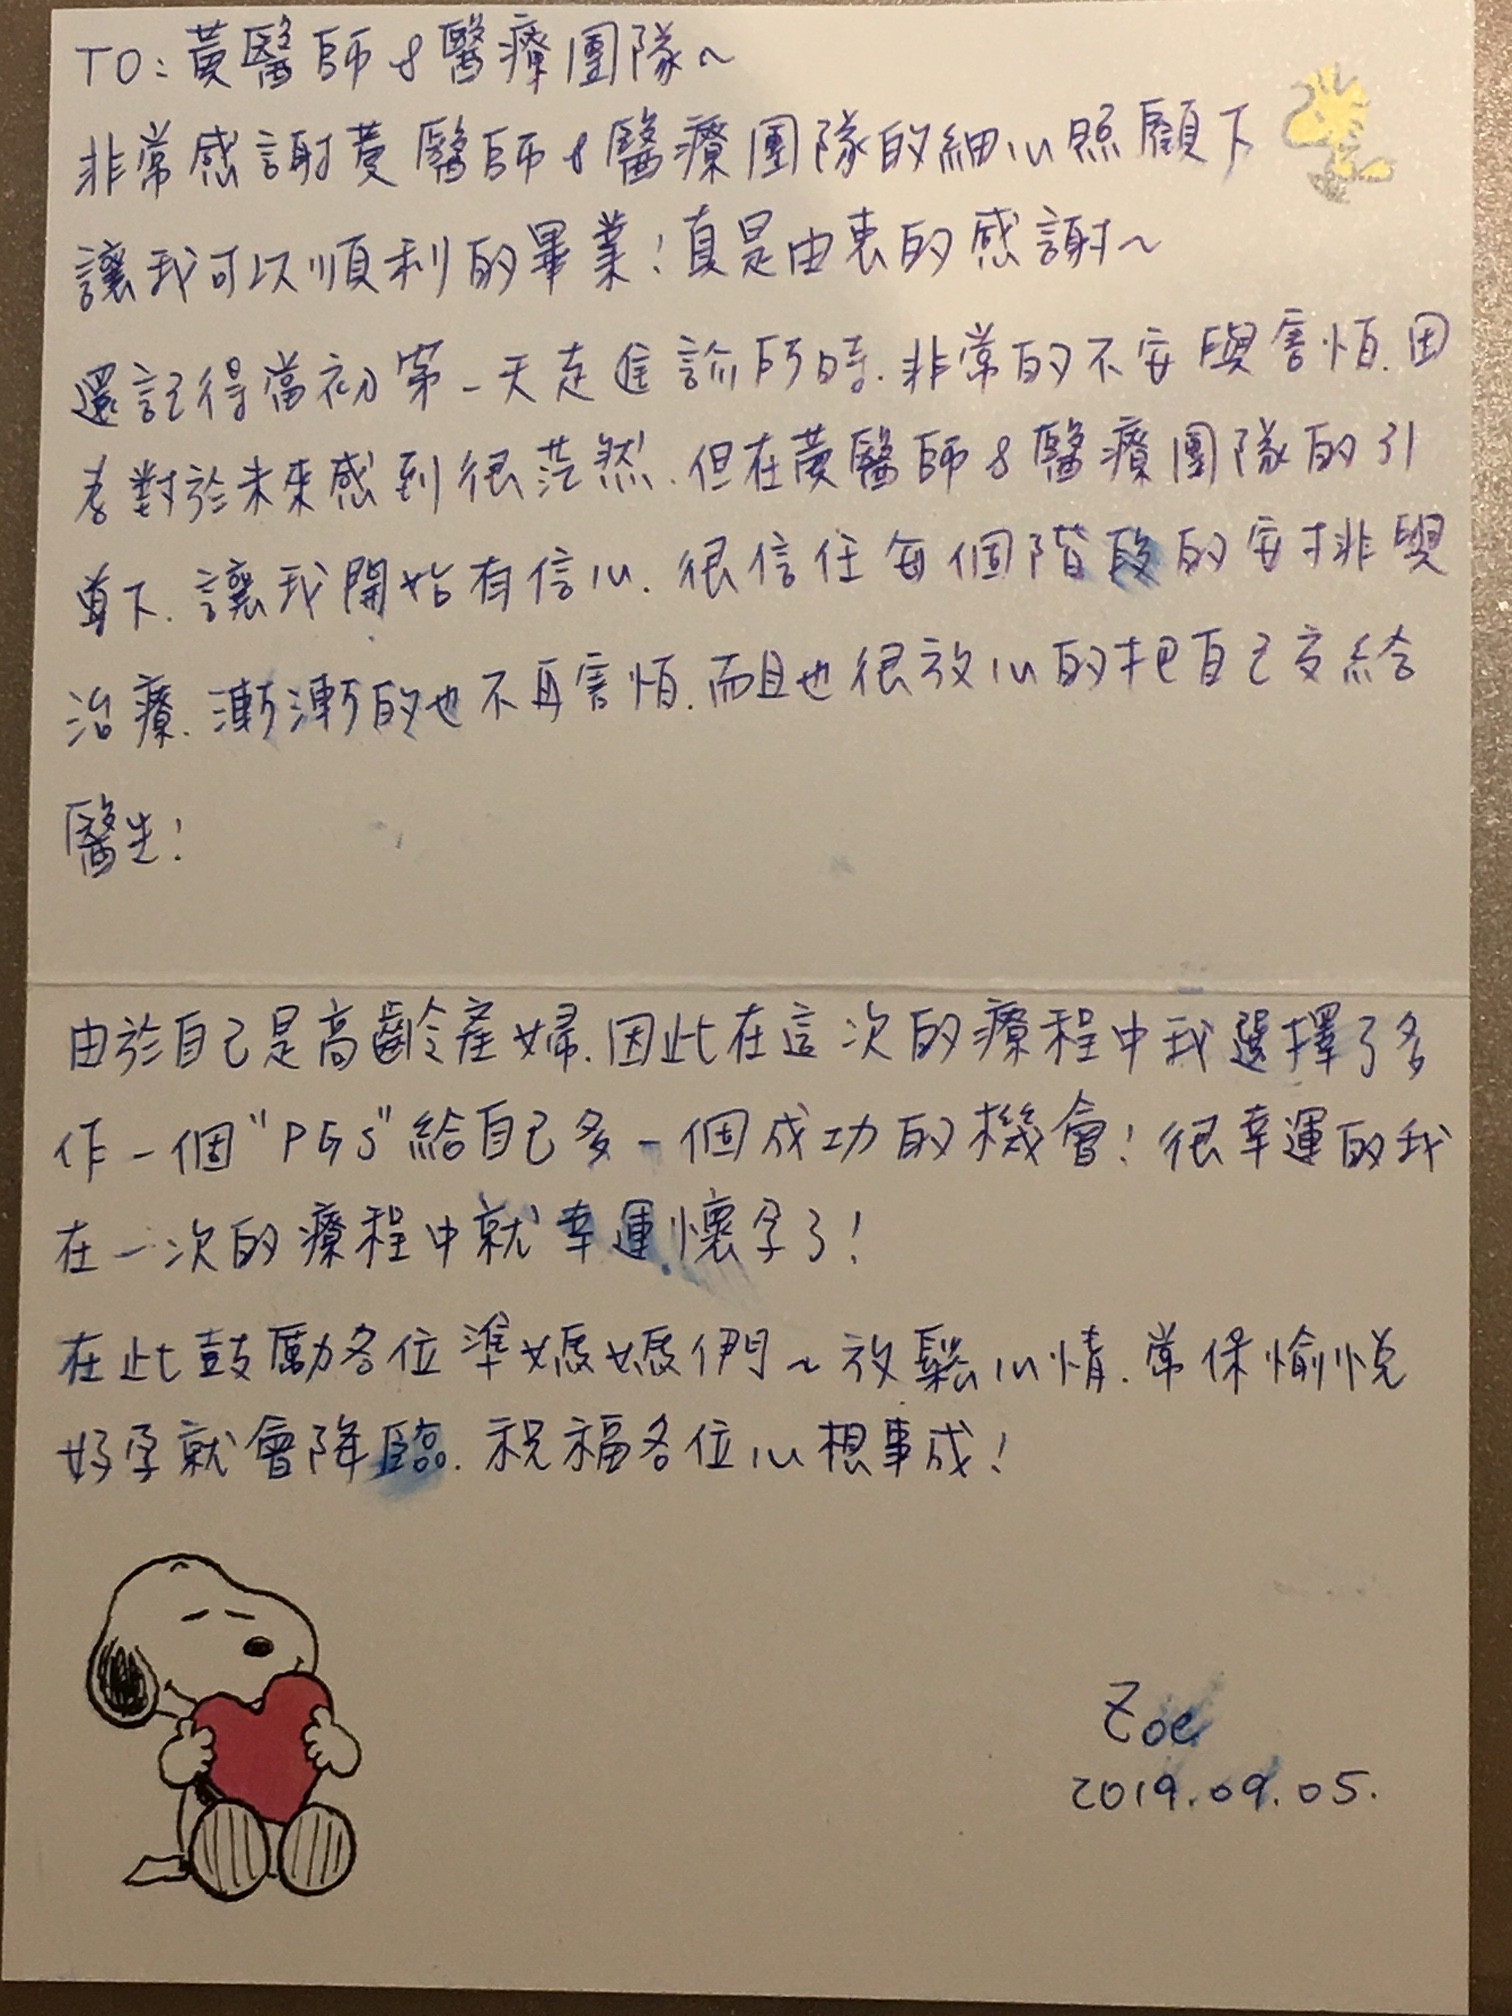 TO：黃醫師&醫療團隊~
非常感謝黃醫師&醫療團隊的細心照顧下
讓我可以順利的畢業！真是由衷的感謝~
還記得當初第一天走進診所時.非常的不安與害怕.因
為對於未來感到很茫然.但在黃醫師&醫療團隊的引
導下.讓我開始有信心.很信任每個階段的安排與
治療.漸漸的也不再害怕.而且也很放心的把自己交給
醫生！
由於自己是高齡產婦.因此在這次的療程中我選擇了多
作一個"PGS"給自己多一個成功的機會！很幸運的我
在一次的療程中就幸運懷孕了！
在此鼓勵各位準媽媽們~放鬆心情.常保愉悅
好孕就會降臨.祝福各位心想事成！
Zoe
2019.09.05.